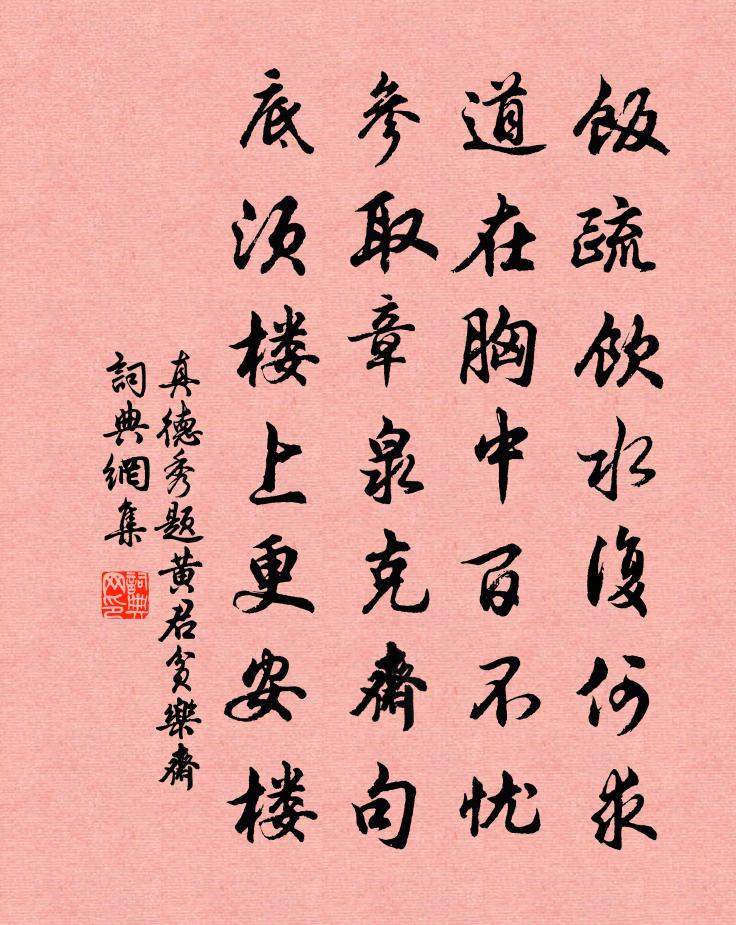 飯疏飲水復何求
道在胸中百不忧
參取章泉克齋句
底須楼上更安楼
真德秀题黄君贫樂齋
詞典網集
詞典网印